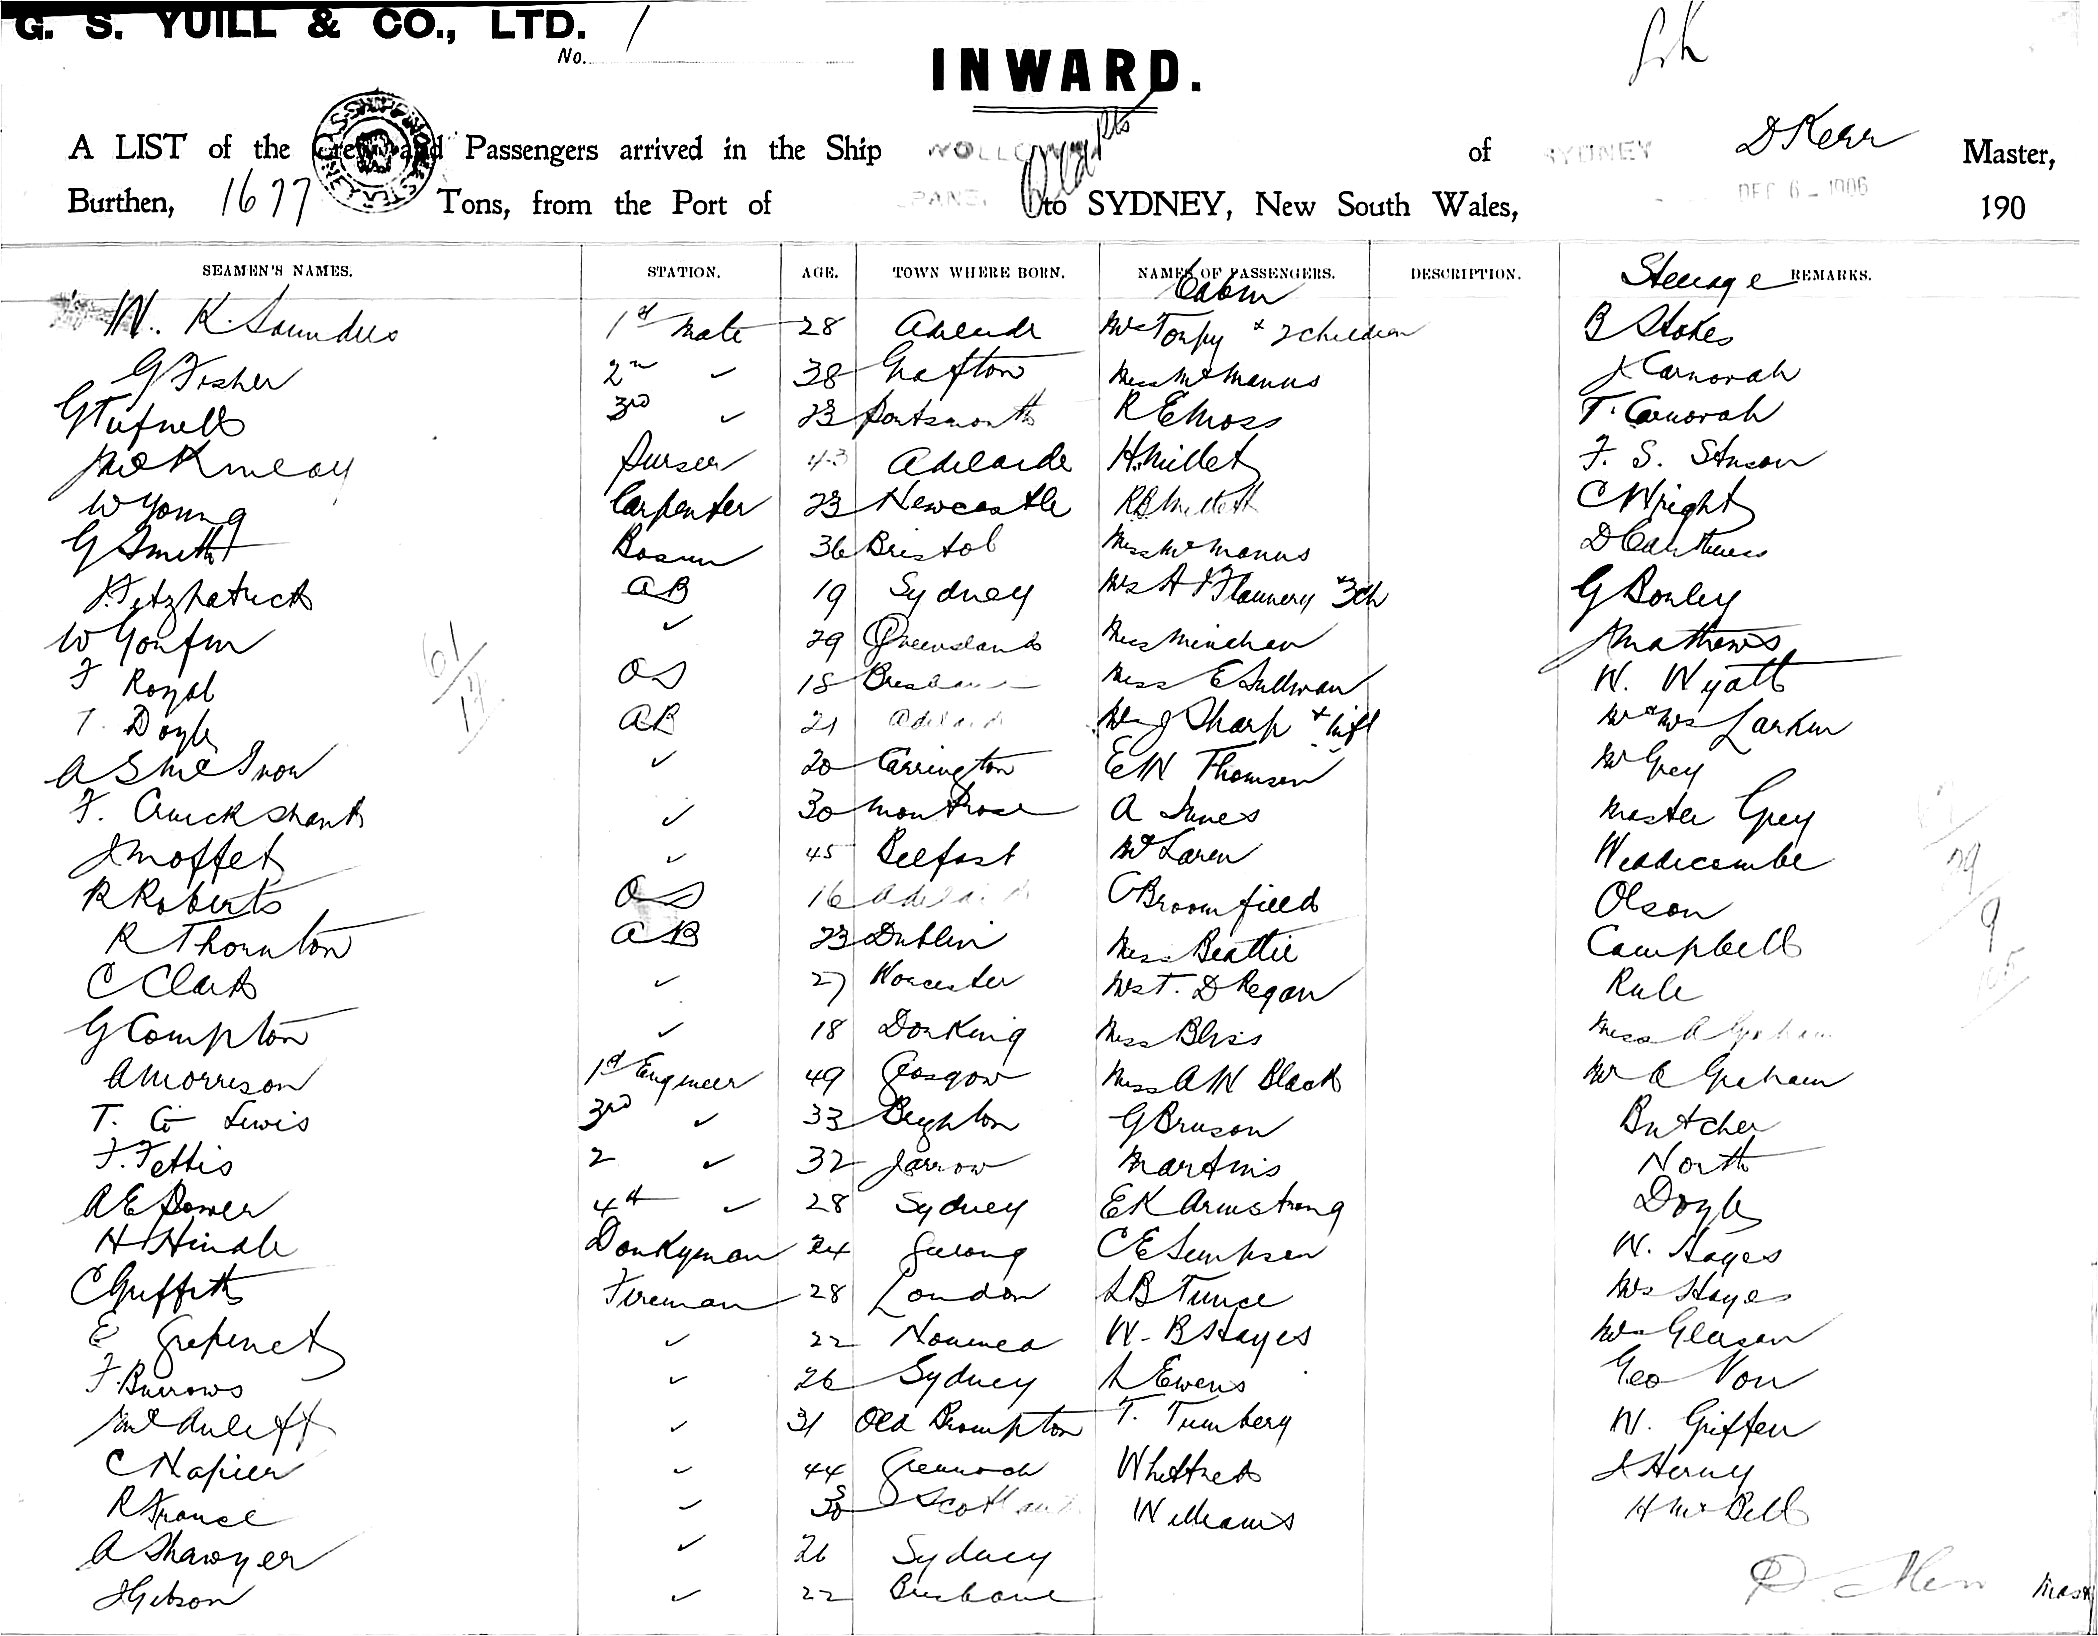 G. S. YUILL & CO., LTD.
No. 1
INWARD.
A LIST of the Crew and Passengers arrived in the Ship WOLLO of SYDNEY D Kerr Master,
Burthen, 1677 Tons, from the Port of to SYDNEY, New South Wales, DEC 6 - 1906 190
SEAMEN'S NAMES. STATION. AGE. TOWN WHERE BORN. NAMES OF PASSENGERS. DESCRIPTION. Steerage REMARKS.
Cabin
W. K. Saunders 1st Mate 28 Adelaide Mrs Torpy + 2 children B Stokes
G Fisher 2nd ✓ 38 Grafton Miss McManus J Carnovah
G Tufnell 3rd ✓ 23 Portsmouth R E Moss T. Carnovah
Purser 43 Adelaide H. Millet F. S. Stinson
W Young Carpenter 23 Newcastle R B Millett C Wright
G Smith Bosun 36 Bristol Miss McManus D
J. Fitzpatrick AB 19 Sydney Mrs A J Flannery + 3 ch G Bonley
W ✓ 29 Queensland Miss Minchan J Mathews
F Royal OS 18 Brisbane Miss E Sullivan W. Wyatt
T. Doyle AB 21 Adelaide J Sharp + inft Mr & Mrs Larkin
A S ✓ 20 Carrington E W Thomson Mr Grey
F. Cruickshank ✓ 30 Montrose A Innes Master Grey
J Moffet ✓ 45 Belfast McLaren Widdicombe
R Roberts OS 16 Adelaide C Broomfield Olson
R Thornton AB 23 Dublin Miss Beattie Campbell
C Clark ✓ 27 Worcester Mrs T. D Regan Rule
G Compton ✓ 18 Dorking Miss Bliss Miss A Graham
A Morrison 1st Engineer 49 Glasgow Miss A W Black Mr A Graham
T. G Lewis 3rd ✓ 33 Brighton G Bruson Butcher
F. Fettis 2 ✓ 32 Jarrow Martins North
A E Power 4th ✓ 28 Sydney E K Armstrong Doyle
H Hindle Donkyman 24 Geelong C E Simpson W. Hayes
C Griffith Fireman 28 London L B Tunce Mrs Hayes
E ✓ 22 Noumea W. B Hayes Mrs Gleason
F. Burrows ✓ 26 Sydney L Ewens Geo Von
McAuliff ✓ 31 Old Brompton T. Turnberg W. Griffen
C Napier ✓ 44 Greenock Whittred J Henry
R France ✓ 30 Scotland Williams H McBell
A Shawyer ✓ 26 Sydney
J Gibson ✓ 22 Brisbane